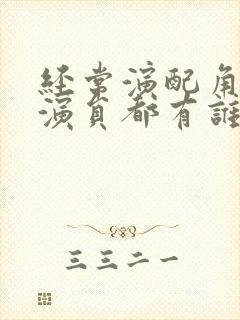 经常演配角
演员都有誰
三三二一